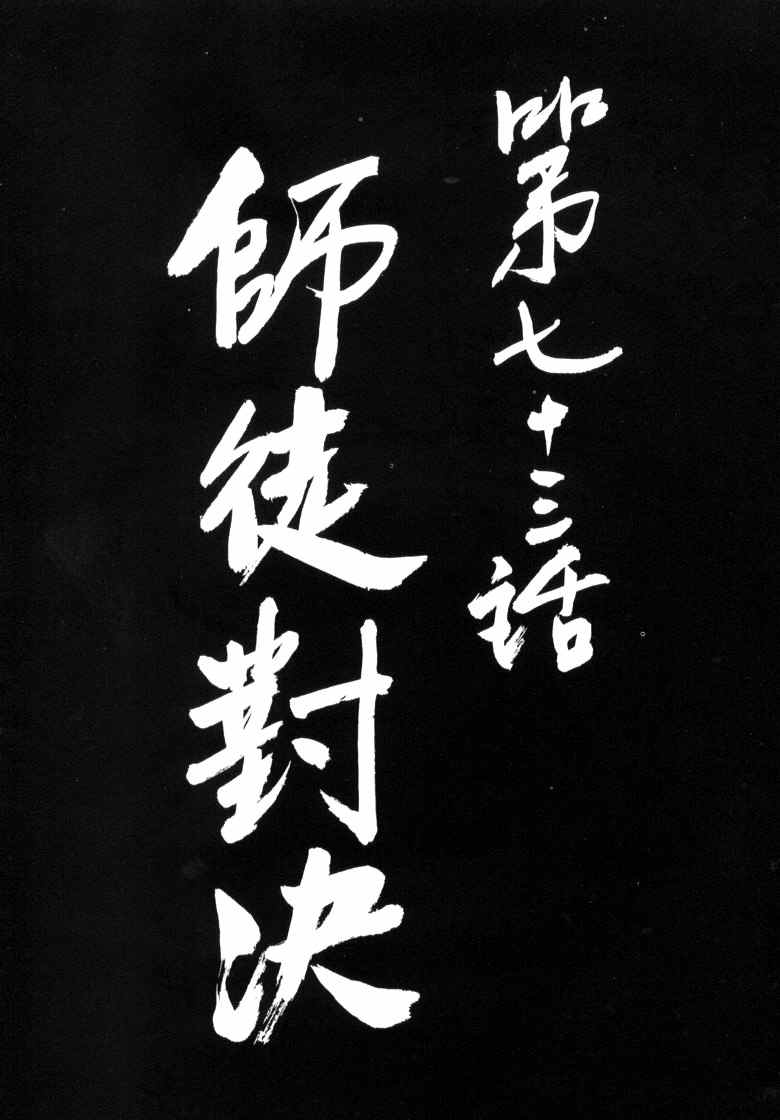 第七十三話
師徒對決